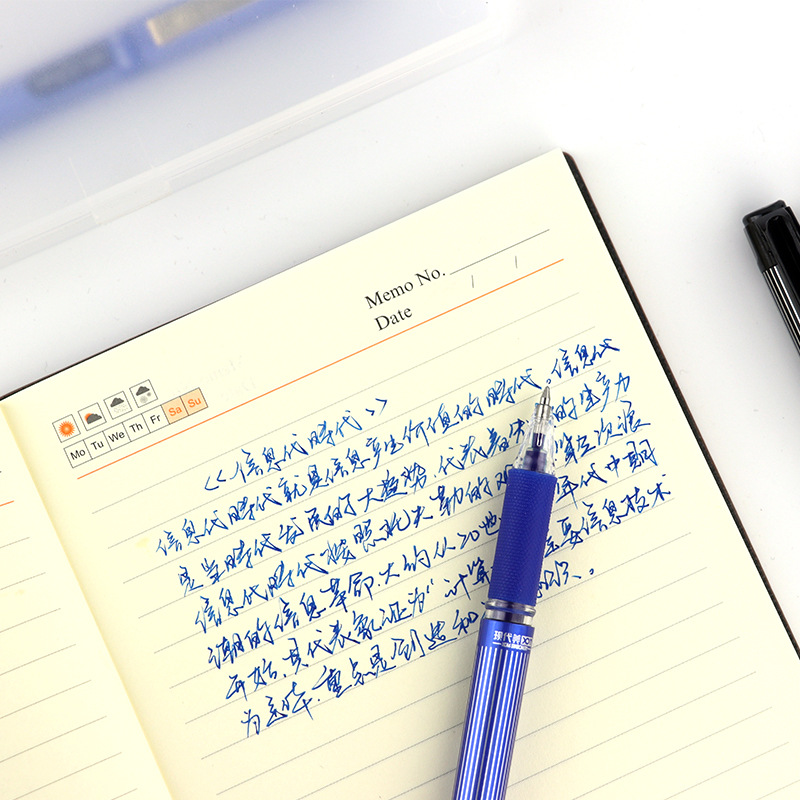 Memo No.
Date / /
Mo Tu We Th Fr Sa Su
《信息代时代》
信息代时代就是信息产生价值的时代。信息代
是当时代发展的大趋势,代表着 的生产力
信息代时代按照托夫勒的 第三次浪
潮的信息革命,大约从20世 年代中期
开始,其代表象征为"计算 主要信息技术
为主体,重点是创造和 知识。
现代美